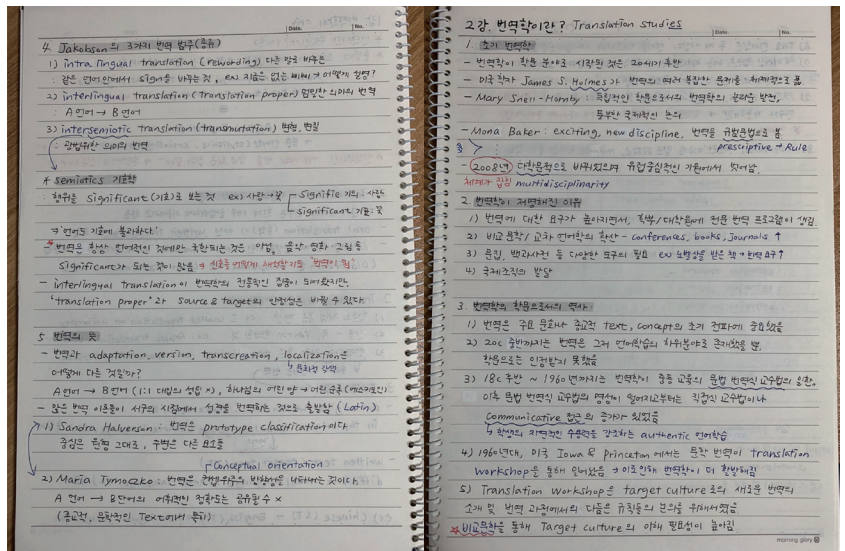 Date. No.
4. Jakobson의 3가지 번역 범주(종류)
1) intra lingual translation (rewording) 다른 말로 바꾸는
: 같은 언어 안에서 sign을 바꾸는 것, ex) 지금은 없는 삐삐 → 어떻게 설명?
2) interlingual translation (translation proper) 엄밀한 의미의 번역
: A언어 → B언어
3) intersemiotic translation (transmutation) 변형, 변질
: 광범위한 의미의 번역
* semiotics 기호학
: 행위를 Significant (기호)로 보는 것 ex) 사랑 → 꽃
Signifie 기의: 사랑
Significant 기표: 꽃
→ 언어도 기호에 불과하다.
- 번역은 항상 언어적인 것에만 국한되는 것은 아님, 음악, 영화, 그림 등
Significant가 되는 것이 많음 → 신호를 어떻게 해석할지도 '번역'이 됨
- interlingual translation이 번역학의 전통적인 집중이 되어왔지만,
'translation proper'과 source & target의 안정성은 바뀔 수 있다.
5 번역의 뜻
- 번역과 adaptation, version, transcreation, localization은
어떻게 다른 것일까?
↳ 문화적 각색
A언어 → B언어 (1:1 대립의 성립 x), 하나님의 어린 양 → 어린 순록 (에스키모인)
- 많은 번역 이론들이 서구의 시점에서 성경을 번역하는 것으로 출발함 (Latin)
1) Sandra Halverson : 번역은 prototype classification이다
중심은 원형 그대로, 주변은 다른 요소들
Conceptual orientation
2) Maria Tymoczko : 번역은 컨셉 위주의 방향성을 나타내는 것이다.
A 언어 → B언어의 어휘적인 정확도는 공유될 수 x
(종교적, 문학적인 Text에서 특히)
2강. 번역학이란? Translation studies
Date. No.
1. 초기 번역학
- 번역학이 학문 분야로 시작된 것은 20세기 후반
- 미국학자 James S. Holmes가 번역의 여러 복잡한 문제를 체계적으로 봄
- Mary Snell-Hornby : 독립적인 학문으로서의 번역학의 놀라운 발전,
풍부한 국제적인 논의
- Mona Baker : exciting, new discipline, 번역을 규범문법으로 봄
prescriptive → Rule
- 2008년 다학문적으로 바뀌었으며 유럽중심적인 기원에서 벗어남
체계가 잡힘 multidisciplinarity
2. 번역학이 저명해진 이유
1) 번역에 대한 요구가 높아지면서, 학부/대학원에 전문 번역 프로그램이 생김
2) 비교문학/교차 언어학의 확산 - conferences, books, journals ↑
3) 문집, 백과사전 등 다양한 도구의 필요 ex) 노벨상을 받은 책 → 번역 요구 ↑
4) 국제조직의 발달
3. 번역학의 학문으로서의 역사
1) 번역은 주요 문화나 종교적 text, concept의 초기 전파에 중요했음
2) 20c 중반까지는 번역은 그저 언어학습의 하위분야로 존재했을 뿐,
학문으로는 인정받지 못했음
3) 18c 후반 ~ 1960년까지는 번역학이 중등 교육의 문법 번역식 교수법의 일환.
이후 문법 번역식 교수법의 명성이 떨어지고부터는 직접식 교수법이나
Communicative 접근의 증가가 있었음
↳ 학생의 자연적인 수용력을 강조하는 authentic 언어학습
4) 1960년대, 미국 Iowa & princeton에서는 문학 번역이 translation
workshop을 통해 일어났음 → 이로인해 번역학이 더 활발해짐
5) Translation workshop은 target culture로의 새로운 번역의
소개 및 번역 과정에서의 다듬은 규칙들의 논의를 위해서였음
☆ 비교문학을 통해 Target culture의 이해 필요성이 높아짐
morning glory